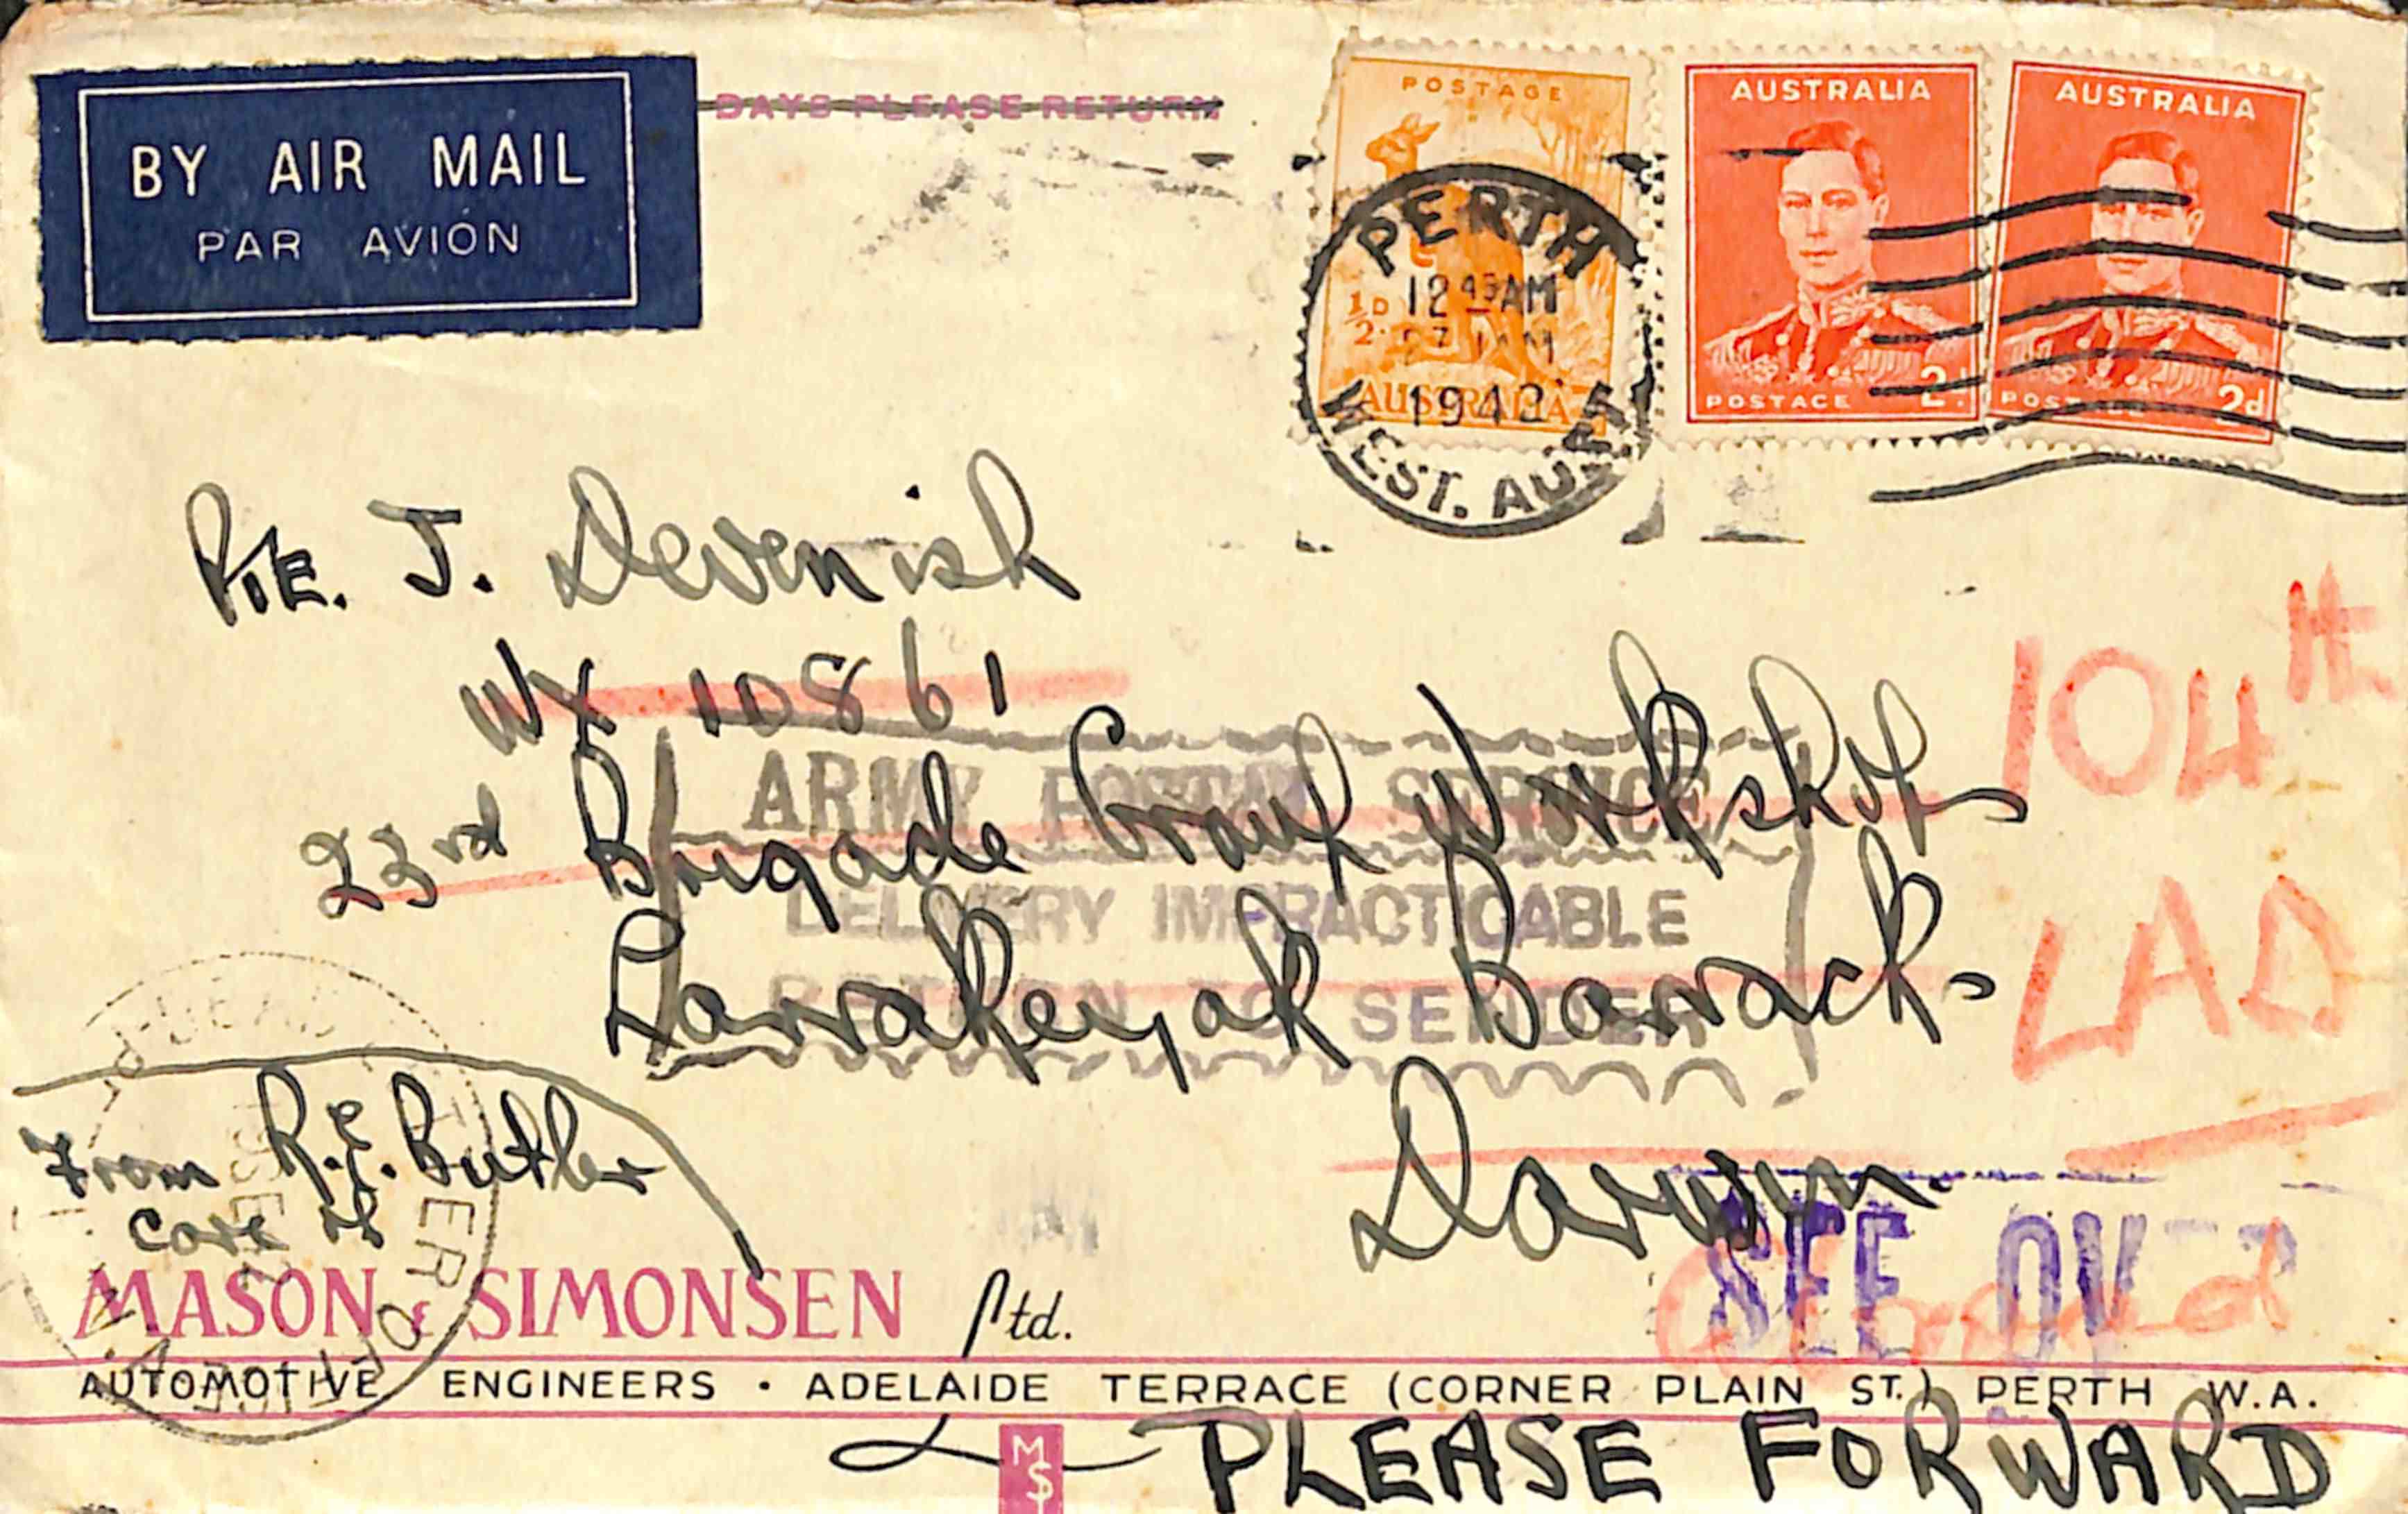 BY AIR MAIL
PAR AVION
DAYS PLEASE RETURN
POSTAGE
½D.
AUSTRALIA
AUSTRALIA
POSTAGE 2d
AUSTRALIA
POSTAGE 2d
PERTH
12 45 AM
27 JAN
1942
WEST. AUST.
Pte. J. Devenish
WX 10861
23rd Brigade Group Workshops
Larrakeyah Barracks
Darwin
104th
LAD
ARMY POSTAL SERVICE
DELIVERY IMPRACTICABLE
RETURN TO SENDER
From R.E. Butler
Care of
LETTER OFFICE
SEE OVER
MASON & SIMONSEN Ltd.
AUTOMOTIVE ENGINEERS · ADELAIDE TERRACE (CORNER PLAIN ST.) PERTH W.A.
MS
PLEASE FORWARD